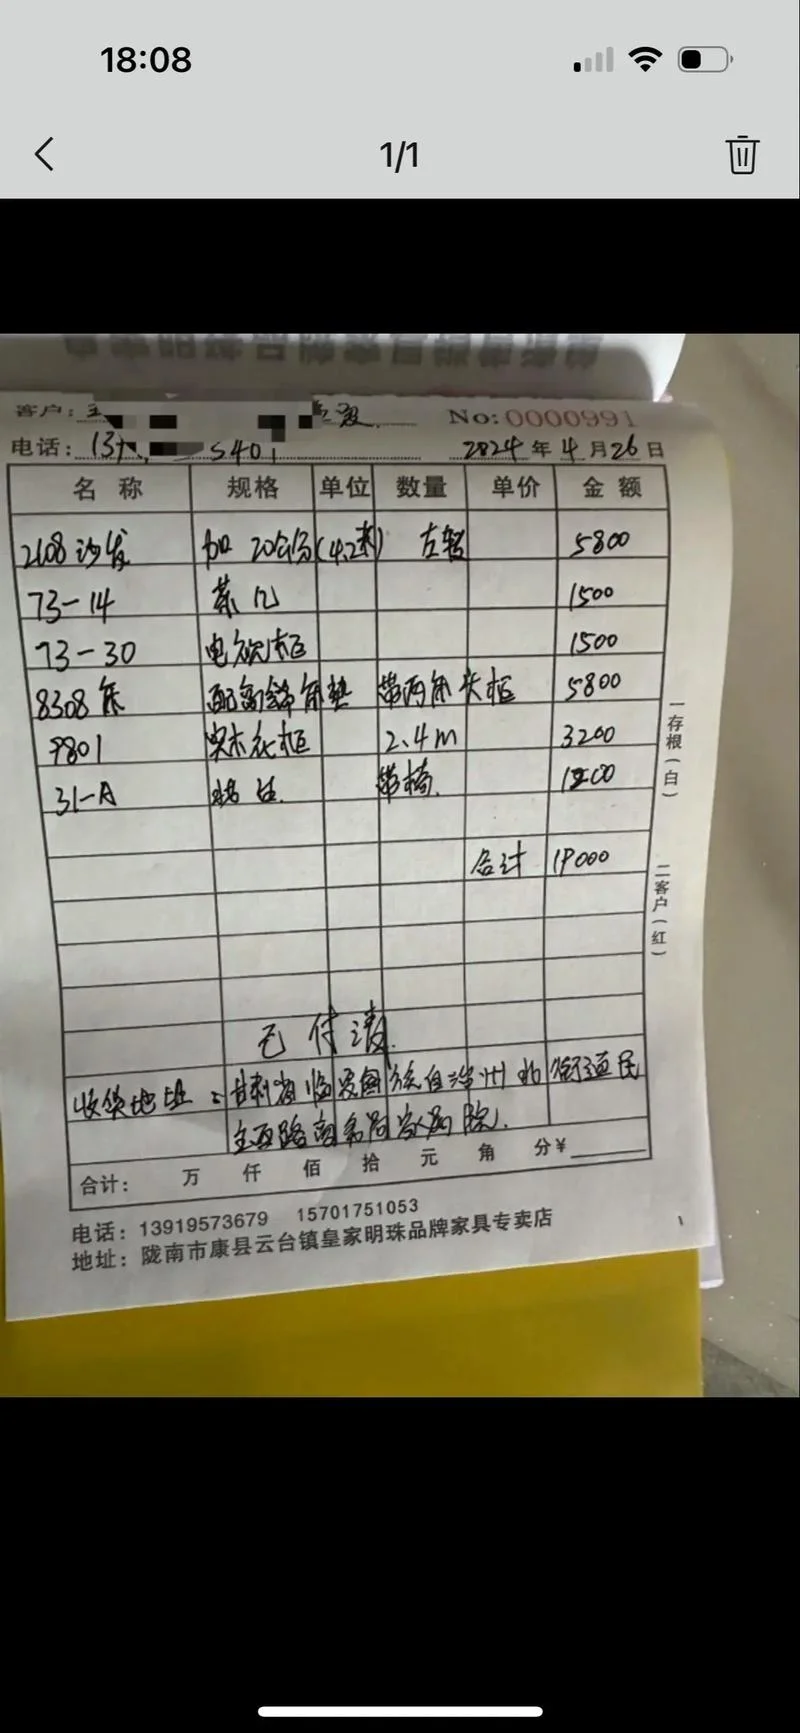 18:08
1/1
客户:
No:0000991
电话: 13 5401
2024年4月26日
名 称 规格 单位 数量 单价 金 额
2108沙发 加20公分(4.2米) 左 5800
73-14 茶几 1500
73-30 电视柜 1500
8308床 配 床垫 带两床头柜 5800
9801 实木衣柜 2.4m 3200
31-A 带椅 1200
合计 19000
已付清
收货地址: 甘肃省临夏回族自治州 街道民
主西路
合计: 万 仟 佰 拾 元 角 分¥
电话: 13919573679 15701751053
地址: 陇南市康县云台镇皇家明珠品牌家具专卖店
一存根(白)
二客户(红)